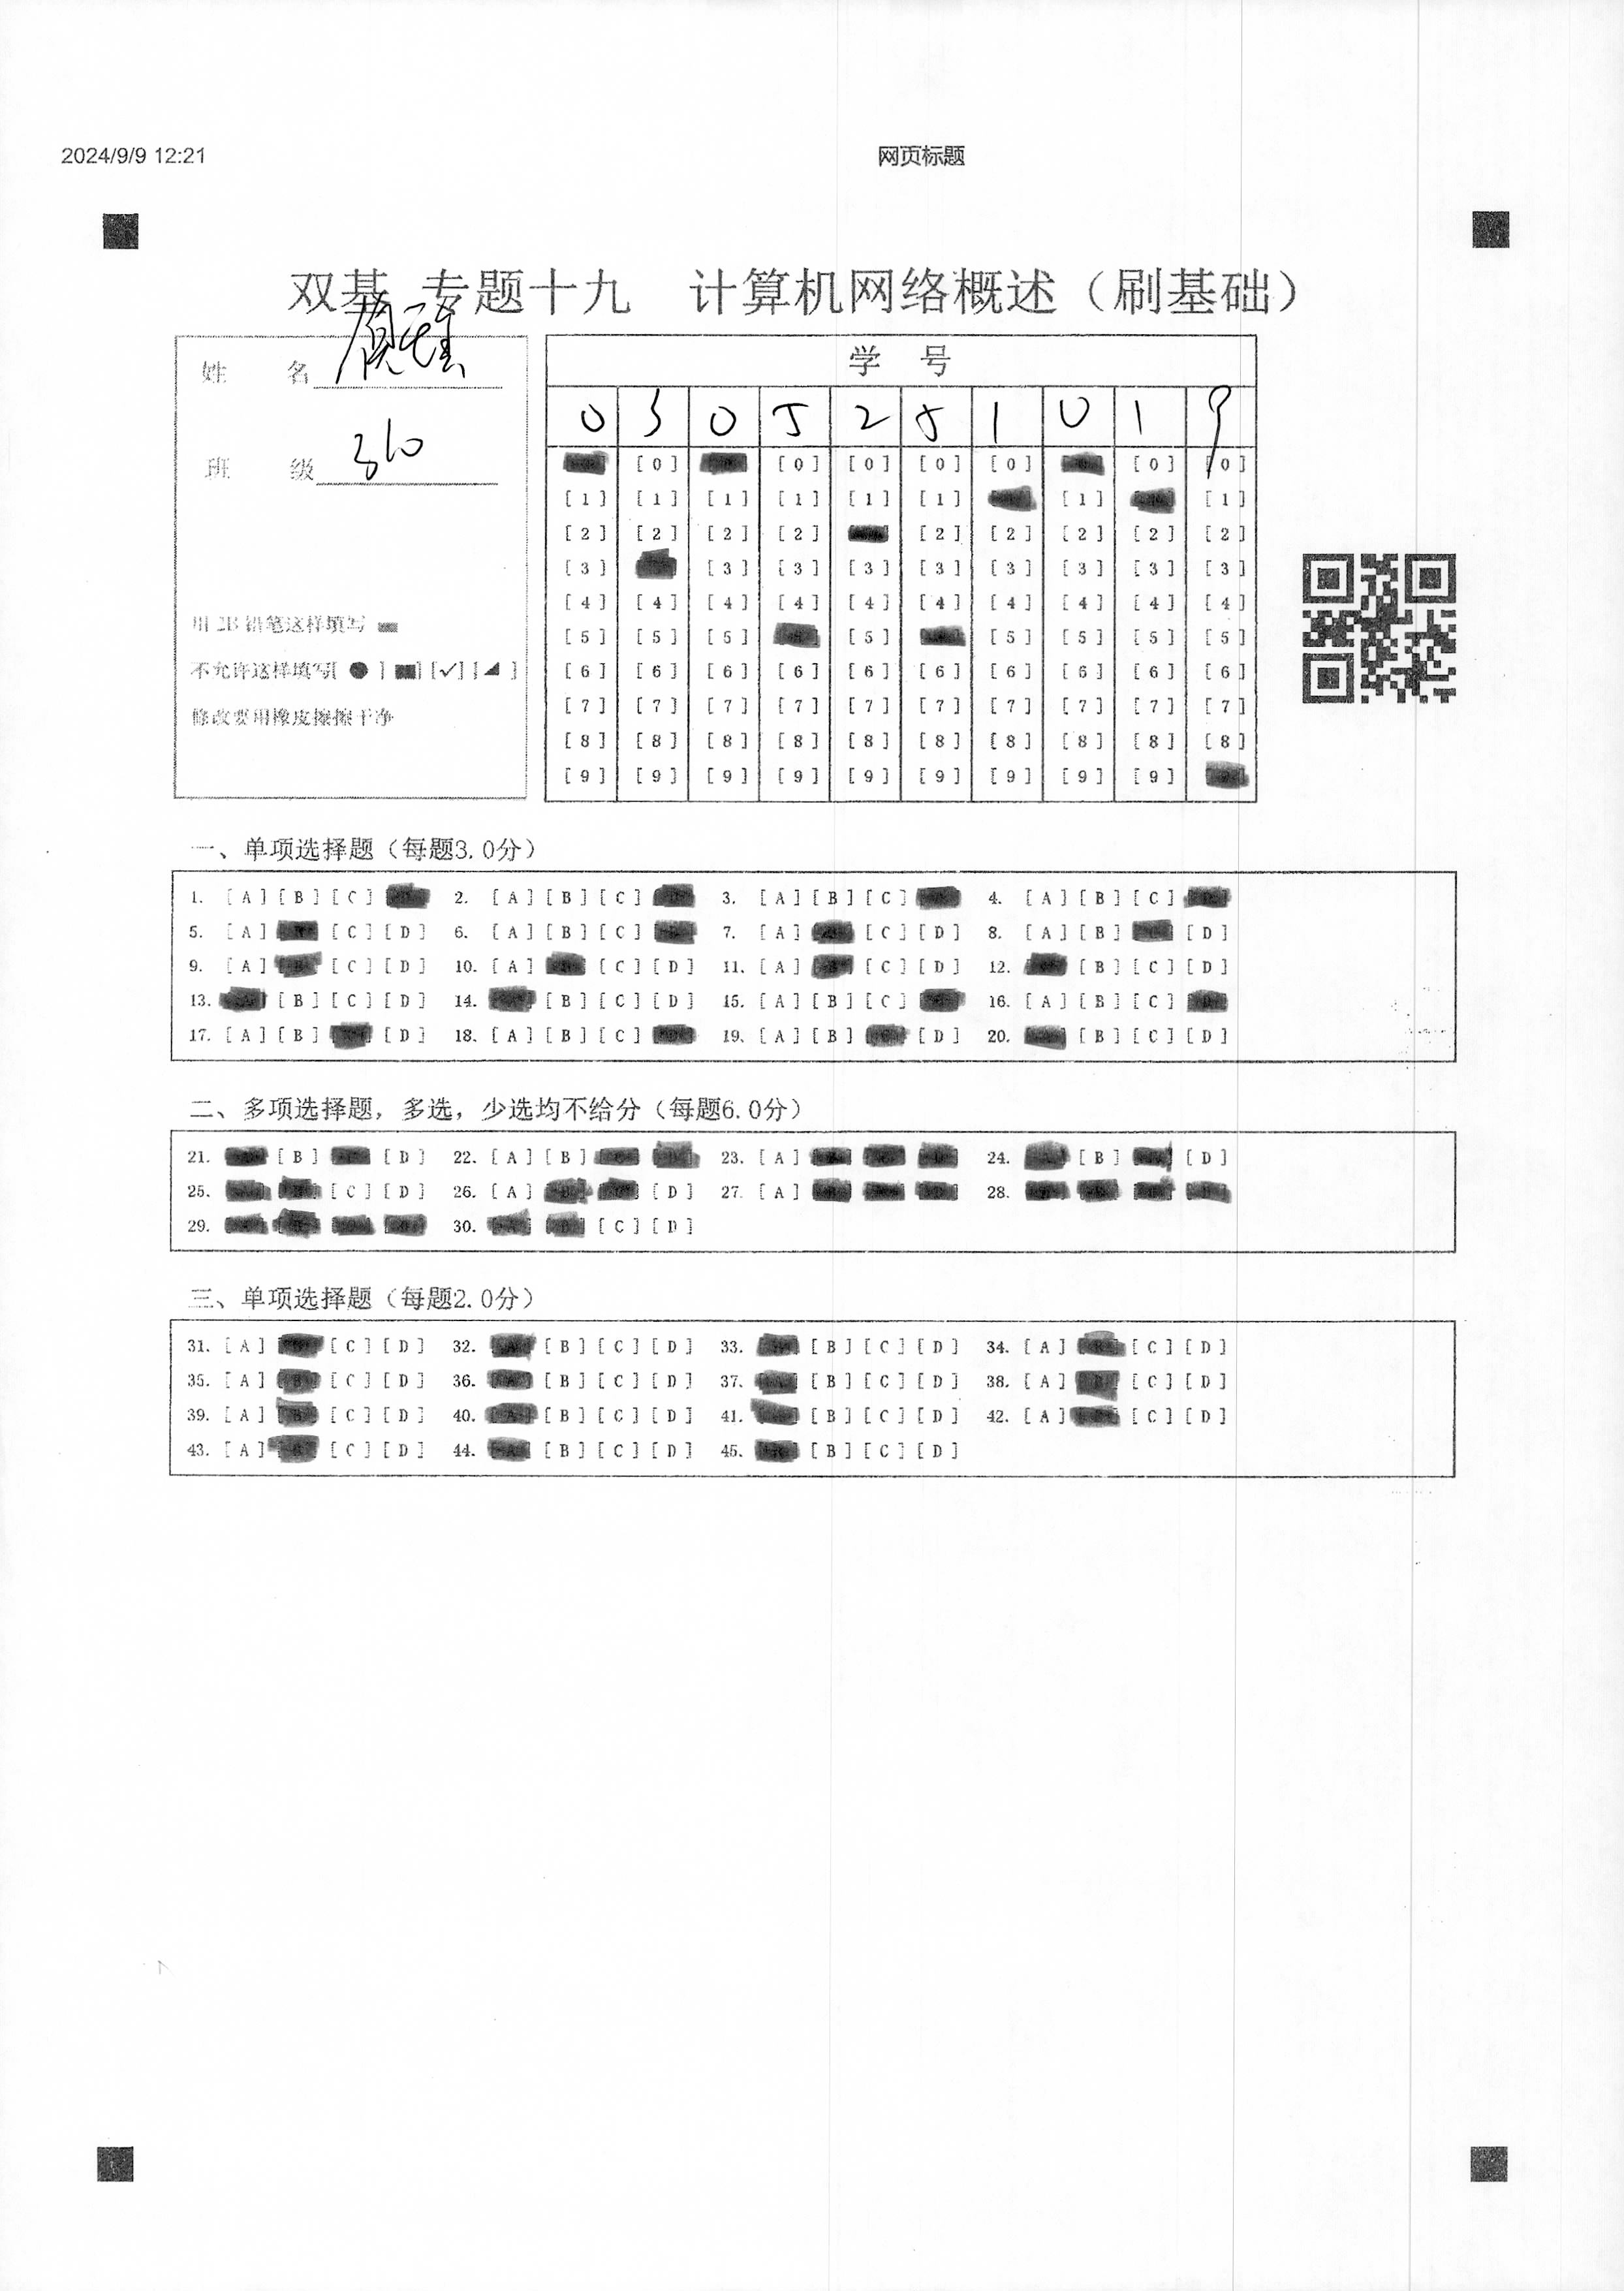 2024/9/9 12:21
网页标题
双基 专题十九 计算机网络概述（刷基础）
姓 名
班 级 310
用 2B 铅笔这样填写
不允许这样填写[ ● ] [■] [✓] [◢ ]
修改要用橡皮擦擦干净
学 号
0 3 0 5 2 5 1 0 1 9
[0] [0] [0] [0] [0] [0] [0]
[1] [1] [1] [1] [1] [1] [1] [1]
[2] [2] [2] [2] [2] [2] [2] [2] [2]
[3] [3] [3] [3] [3] [3] [3] [3] [3]
[4] [4] [4] [4] [4] [4] [4] [4] [4] [4]
[5] [5] [5] [5] [5] [5] [5] [5]
[6] [6] [6] [6] [6] [6] [6] [6] [6] [6]
[7] [7] [7] [7] [7] [7] [7] [7] [7] [7]
[8] [8] [8] [8] [8] [8] [8] [8] [8] [8]
[9] [9] [9] [9] [9] [9] [9] [9] [9]
一、单项选择题（每题3.0分）
1. [A] [B] [C] 2. [A] [B] [C] 3. [A] [B] [C] 4. [A] [B] [C]
5. [A] [C] [D] 6. [A] [B] [C] 7. [A] [C] [D] 8. [A] [B] [D]
9. [A] [C] [D] 10. [A] [C] [D] 11. [A] [C] [D] 12. [B] [C] [D]
13. [B] [C] [D] 14. [B] [C] [D] 15. [A] [B] [C] 16. [A] [B] [C]
17. [A] [B] [D] 18. [A] [B] [C] 19. [A] [B] [D] 20. [B] [C] [D]
二、多项选择题，多选，少选均不给分（每题6.0分）
21. [B] [D] 22. [A] [B] 23. [A] 24. [B] [D]
25. [C] [D] 26. [A] [D] 27. [A] 28.
29. 30. [C] [D]
三、单项选择题（每题2.0分）
31. [A] [C] [D] 32. [B] [C] [D] 33. [B] [C] [D] 34. [A] [C] [D]
35. [A] [C] [D] 36. [B] [C] [D] 37. [B] [C] [D] 38. [A] [C] [D]
39. [A] [C] [D] 40. [B] [C] [D] 41. [B] [C] [D] 42. [A] [C] [D]
43. [A] [C] [D] 44. [B] [C] [D] 45. [B] [C] [D]